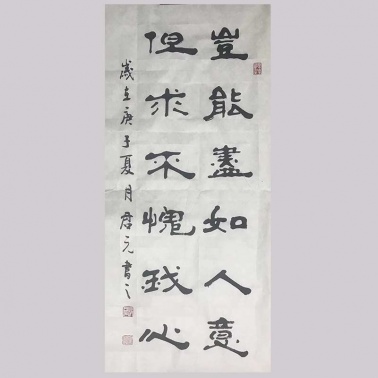 豈能盡如人意
但求不愧我心
歲在庚子夏月君元書之